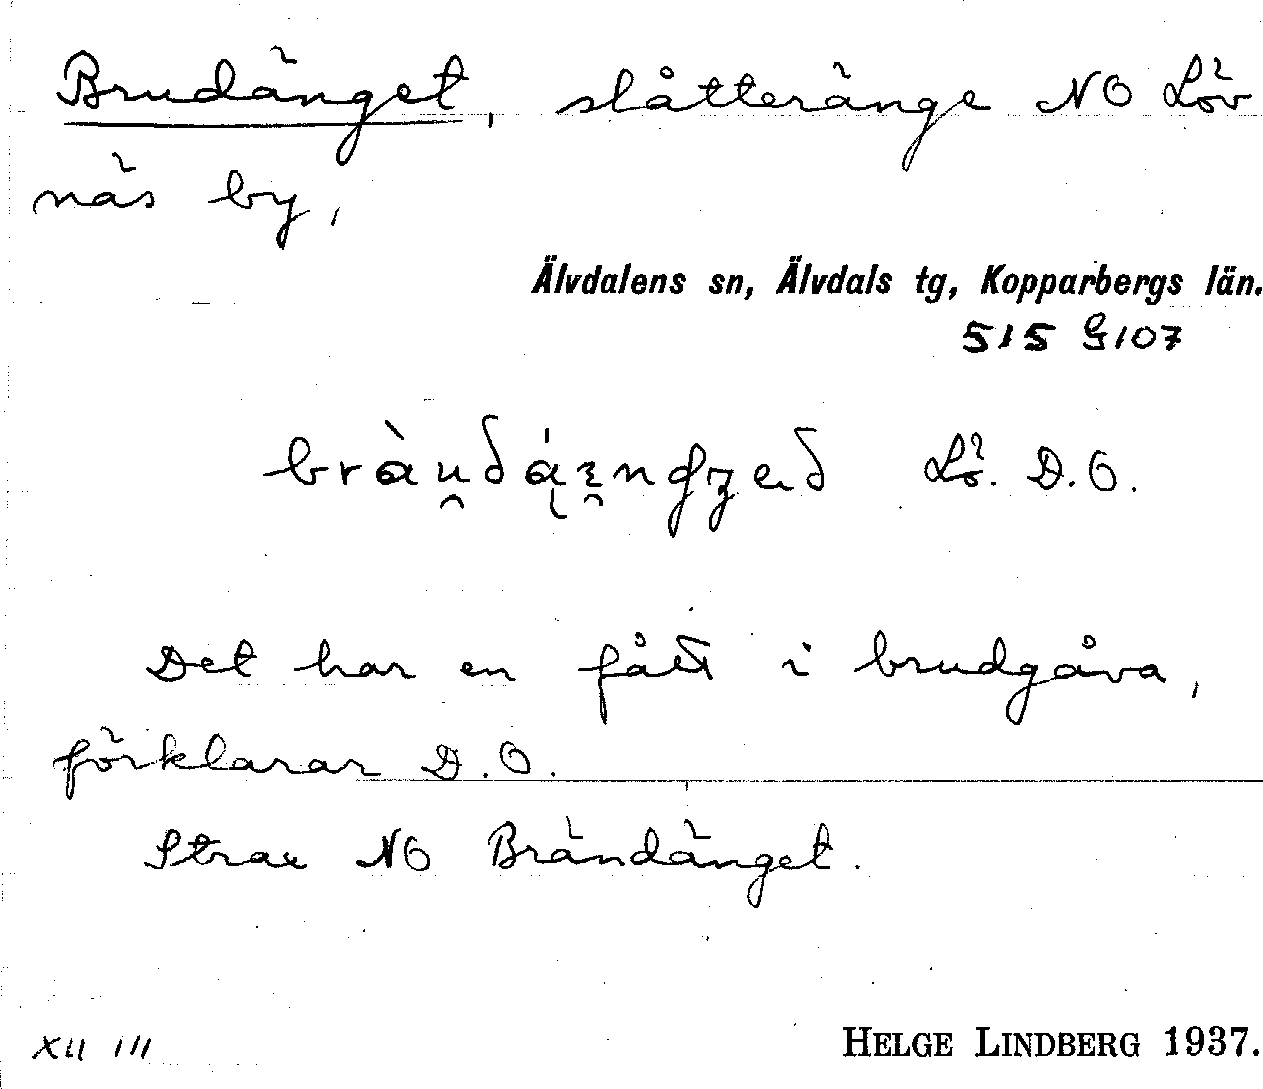 Brudänget, slåtteränge NO Löv
näs by,
Älvdalens sn, Älvdals tg, Kopparbergs län.
515 G107
Lö. D.O.
Det har en fått i brudgåva,
förklarar D.O.
Strax NO Brändänget.
XII III
HELGE LINDBERG 1937.